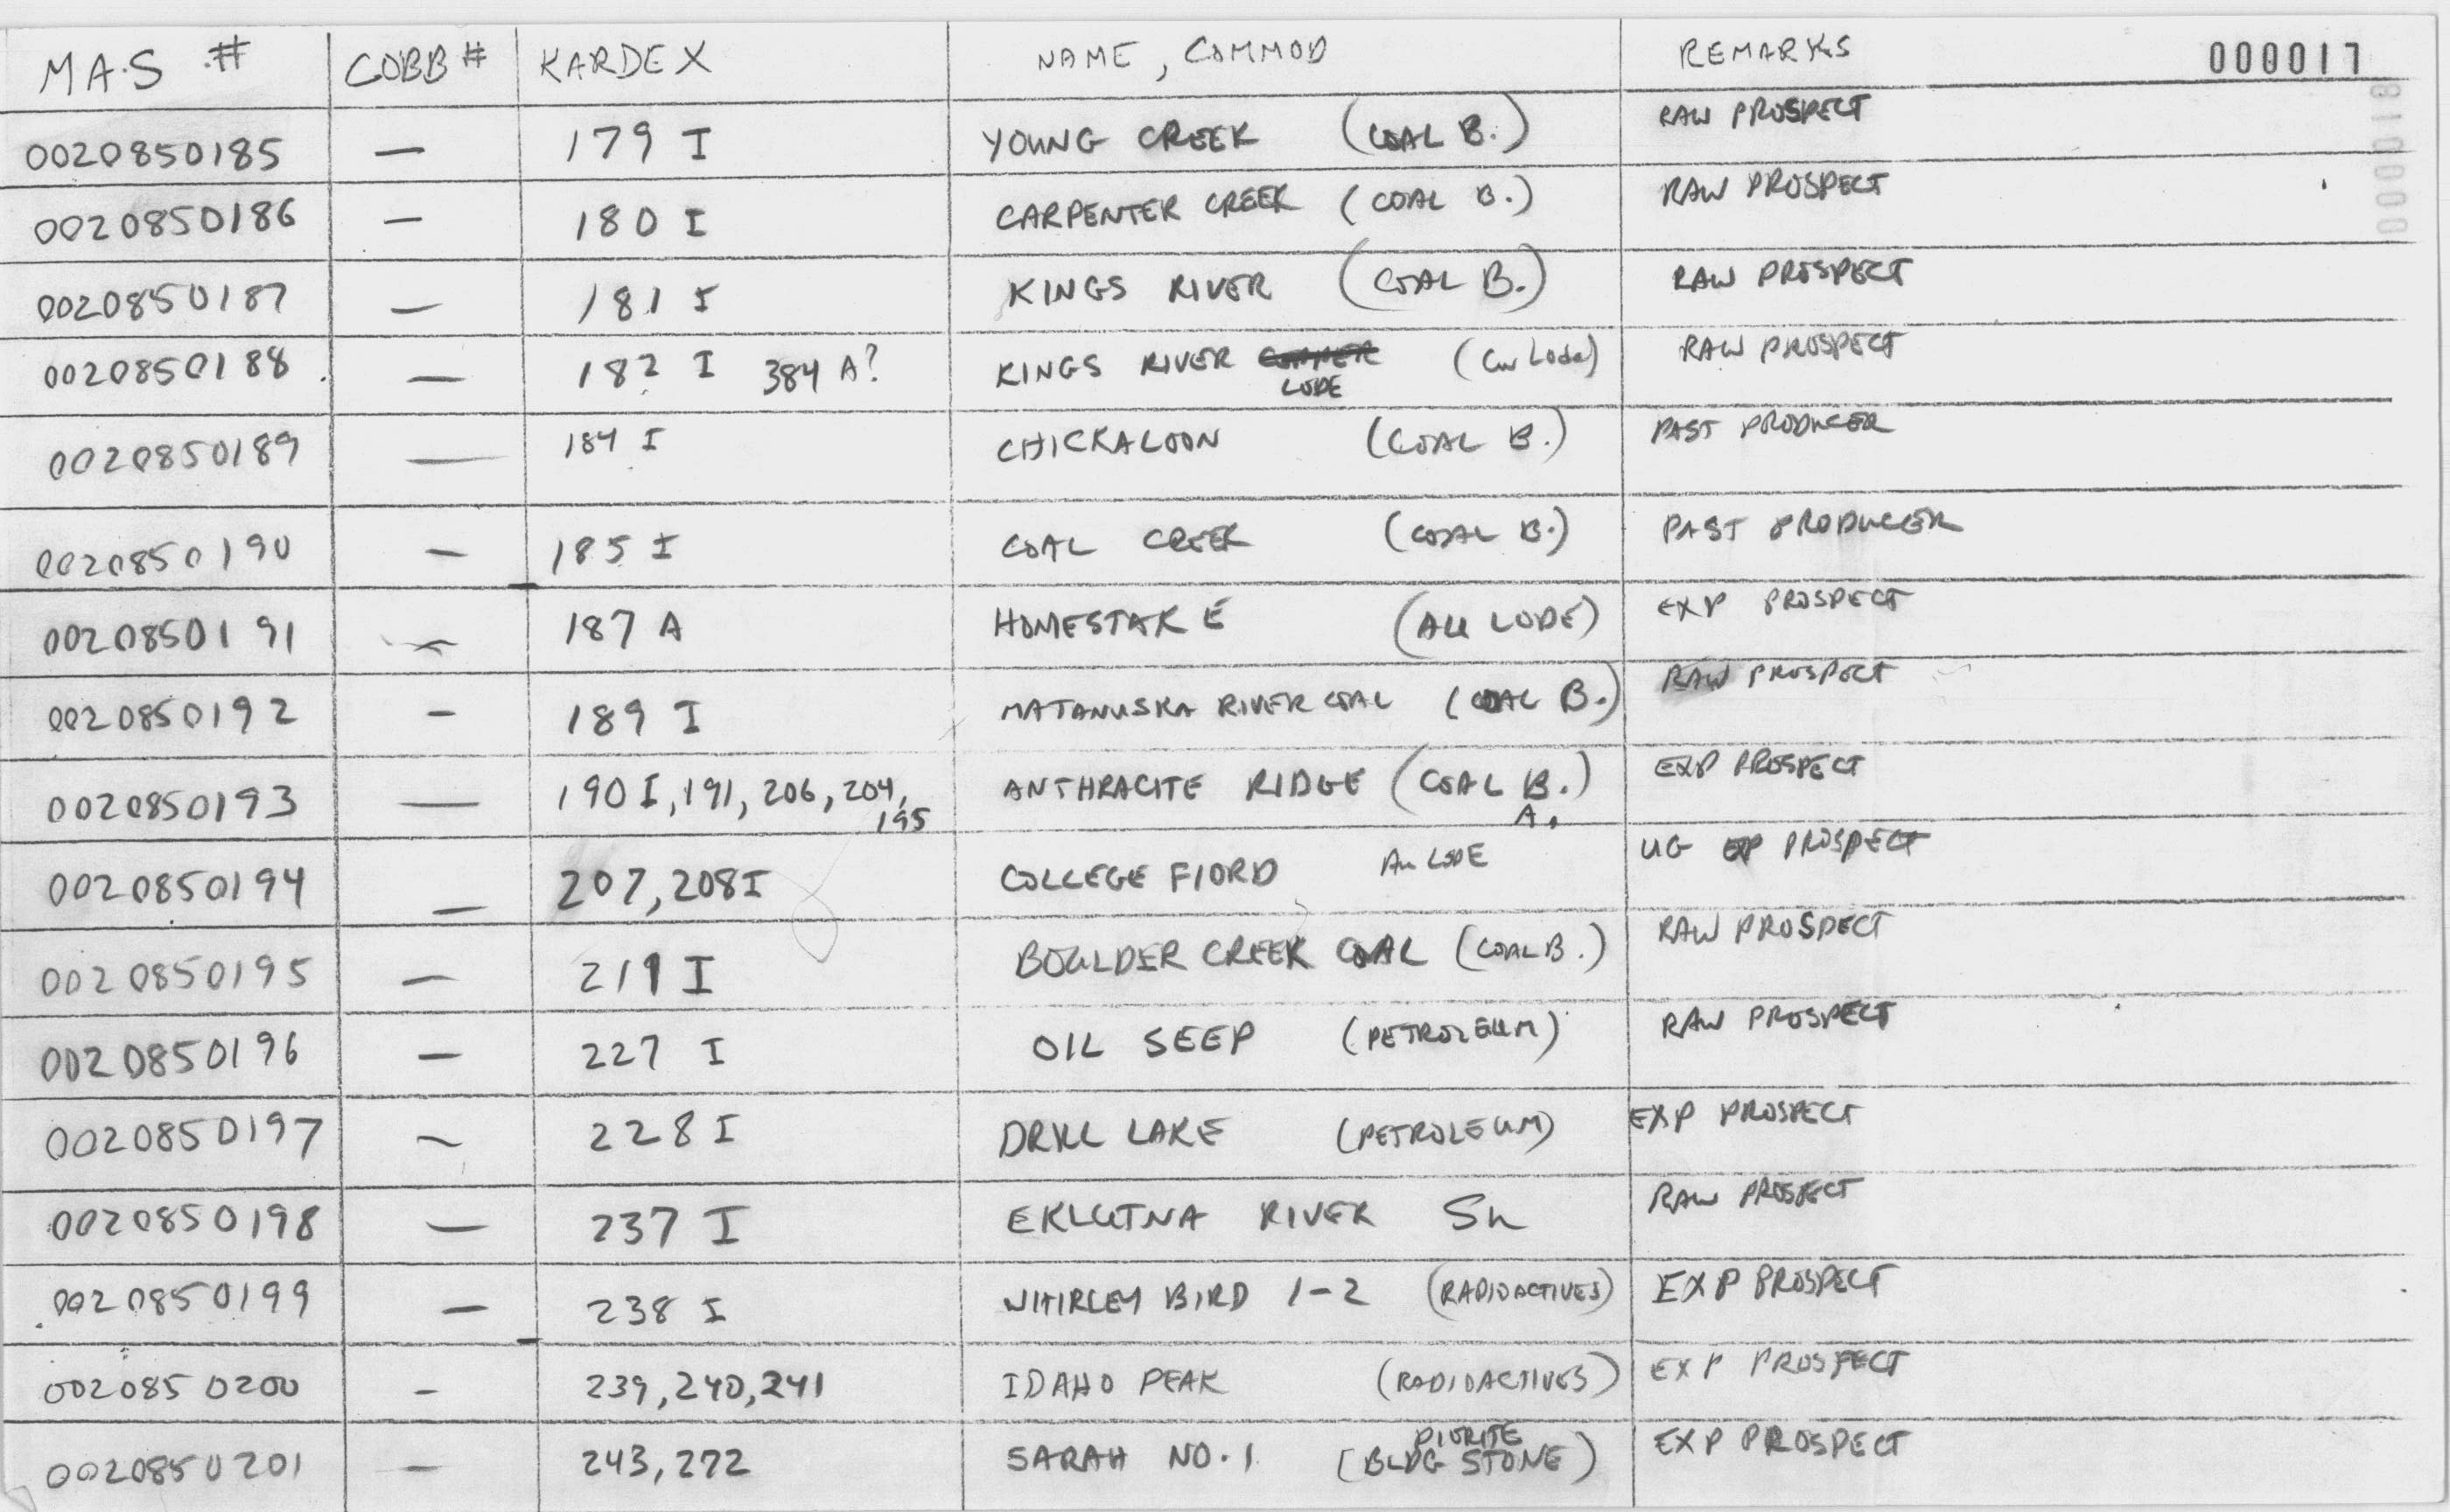 MAS # COBB # KARDEX NAME, COMMOD REMARKS 000017
000018
0020850185 — 179 I YOUNG CREEK (COAL B.) RAW PROSPECT
0020850186 — 180 I CARPENTER CREEK (COAL B.) RAW PROSPECT
0020850187 — 181 I KINGS RIVER (COAL B.) RAW PROSPECT
0020850188 — 182 I 384 A? KINGS RIVER LODE (Cu Lode) RAW PROSPECT
0020850189 — 184 I CHICKALOON (COAL B.) PAST PRODUCER
0020850190 — 185 I COAL CREEK (COAL B.) PAST PRODUCER
0020850191 — 187 A HOMESTAKE (AU LODE) EXP PROSPECT
0020850192 — 189 I MATANUSKA RIVER COAL (COAL B.) RAW PROSPECT
0020850193 — 190 I, 191, 206, 204, 195 ANTHRACITE RIDGE (COAL B.) A. EXP PROSPECT
0020850194 — 207, 208 I COLLEGE FIORD Au LODE UG EXP PROSPECT
0020850195 — 219 I BOULDER CREEK COAL (COAL B.) RAW PROSPECT
0020850196 — 227 I OIL SEEP (PETROLEUM) RAW PROSPECT
0020850197 — 228 I DRILL LAKE (PETROLEUM) EXP PROSPECT
0020850198 — 237 I EKLUTNA RIVER Sn RAW PROSPECT
0020850199 — 238 I WHIRLEY BIRD 1-2 (RADIOACTIVES) EXP PROSPECT
0020850200 — 239, 240, 241 IDAHO PEAK (RADIOACTIVES) EXP PROSPECT
0020850201 — 243, 272 SARAH NO. 1 (DIORITE BLDG STONE) EXP PROSPECT